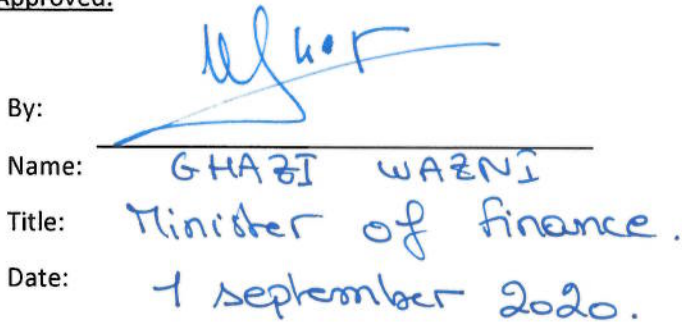 Approved:
By:
Name: GHAZI WAZNI
Title: Minister of finance.
Date: 1 september 2020.